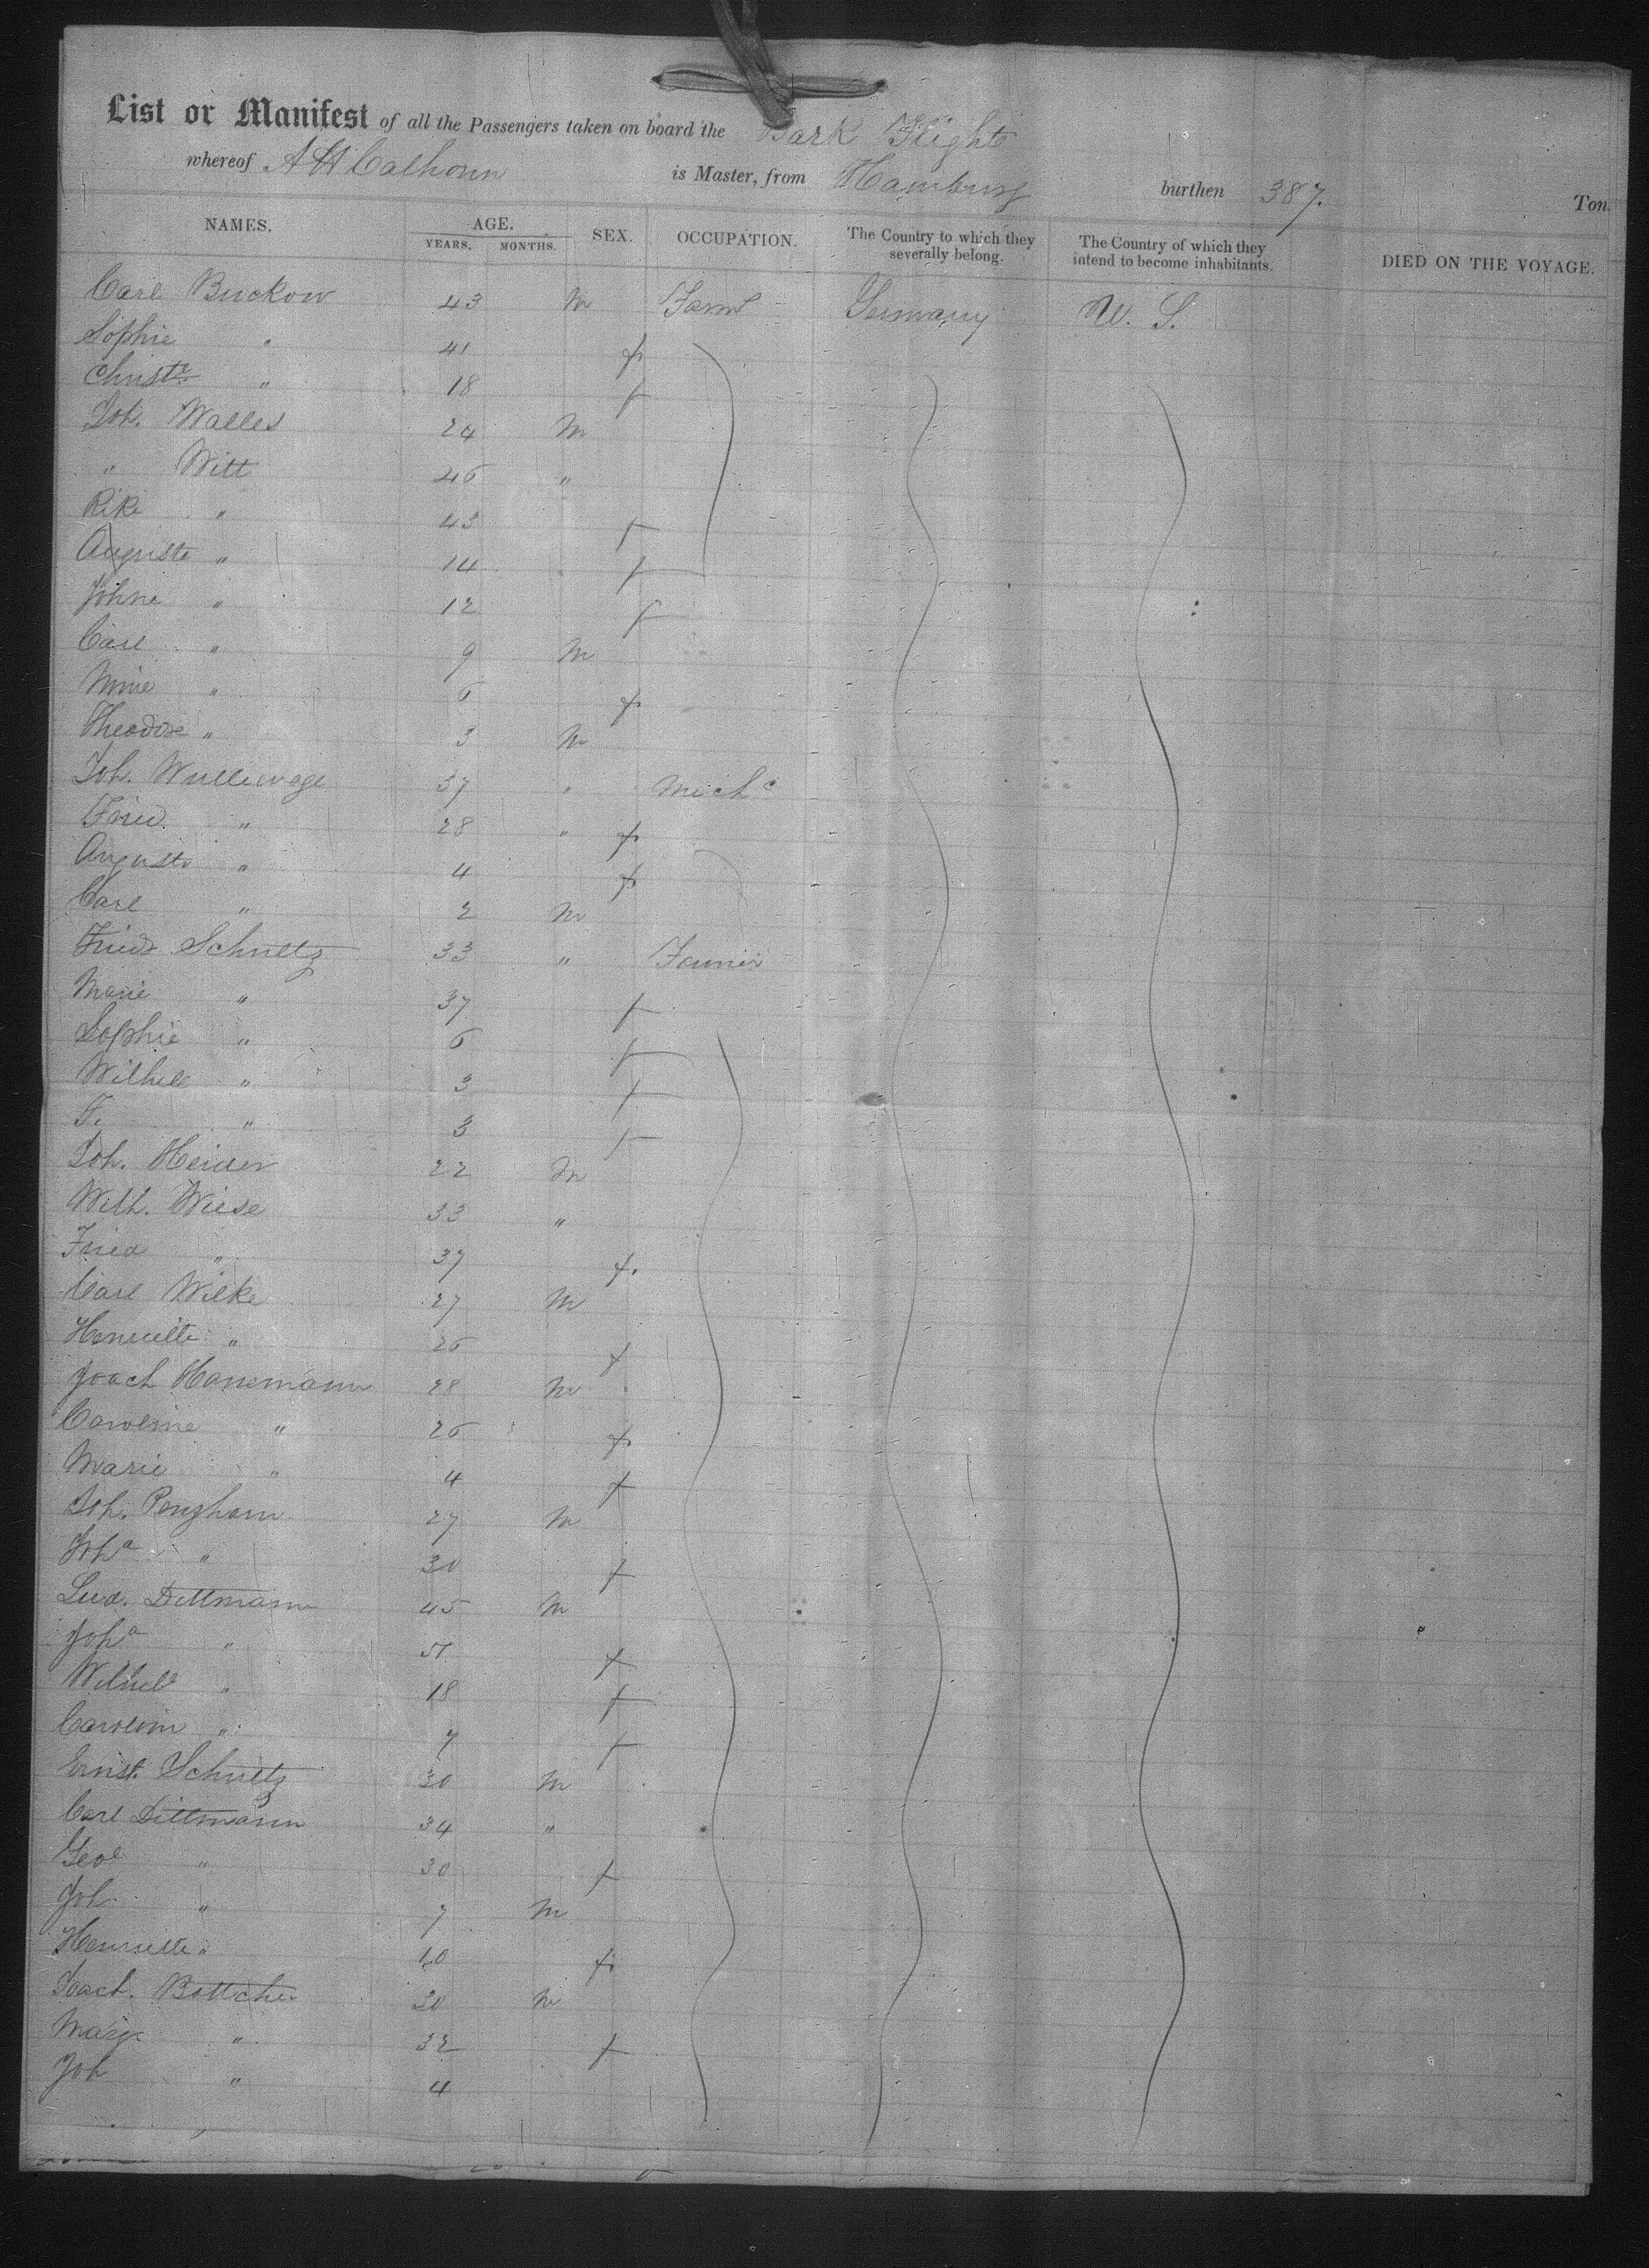 List or Manifest of all the Passengers taken on board the Bark Flight
whereof A H Calhoun is Master, from Hamburg burthen 387. Ton.
NAMES. AGE. YEARS. MONTHS. SEX. OCCUPATION. The Country to which they severally belong. The Country of which they intend to become inhabitants. DIED ON THE VOYAGE.
Carl Buckow 43 M Farmr Germany U. S.
Sophie " 41 f
Christe " 18 f
Joh. Walles 24 M
" Witt 46 "
Rike " 43 f
Auguste " 14 f
Johne " 12 f
Carl " 9 M
Mine " 6 f
Theodor " 3 M
Joh. 37 " Mechc
Fried. " 28 " f
Auguste " 4 f
Carl " 2 M
Friedr Schultz 33 " Farmer
Marie " 37 f
Sophie " 6 f
Wilhele " 3 f
F. " 3 f
Joh. Heiden 22 M
Wilh. Wiese 33 "
Fried " 37 f
Carl Wilke 27 M
Henriette " 26 f
Joach Hanemann 28 M
Caroline " 26 f
Marie " 4 f
Joh. 27 M
Joha " 30 f
Lud. Dittmann 45 M
Joha " 51 f
Wilhele " 18 f
Carolin " 7 f
Ernst. Schultz 30 M
Carl Dittmann 34 "
" 30 f
Joh " 7 M
Henriette " 10 f
Joach. Bottcher 30 M
Marg. " 32 f
Joh " 4